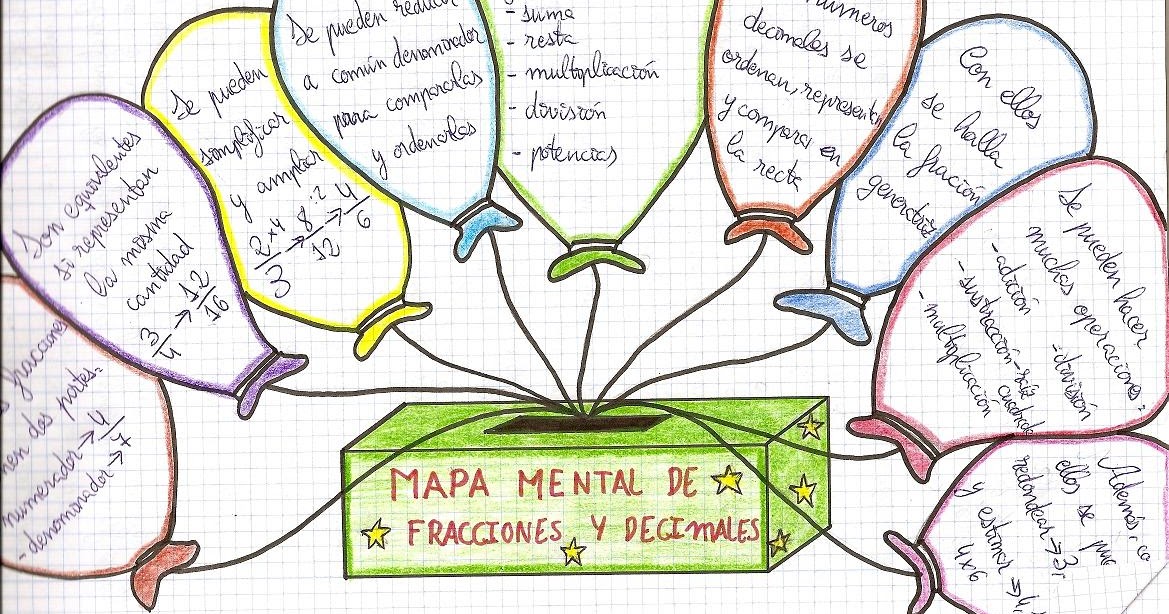 fracciones
nen dos partes:
numerador → 4
- denominador → 7
Son equivalentes
si representan
la misma
cantidad
3/4 → 12/16
Se pueden
simplificar
y ampliar
2/3 ×4 → 8/12 :2 → 4/6
Se pueden reducir
a común denominador
para compararlas
y ordenarlas
- suma
- resta
- multiplicación
- división
- potencias
números
decimales se
ordenan, representan
y comparan en
la recta
Con ellos
se halla
la fración
generatriz
Se pueden hacer
muchas operaciones:
- adición - división
- sustracción - raíz cuadrada
- multiplicación
Además, co
ellos se pue
redondear → 3,
y estimar →
4x6
MAPA MENTAL DE
FRACCIONES Y DECIMALES